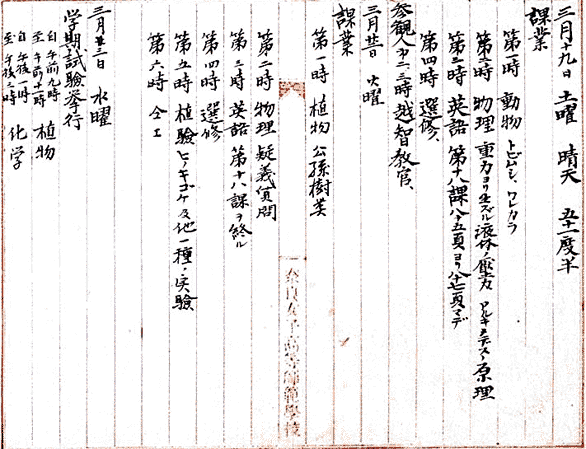 三月十九日 土曜 晴天 五十一度半
課業
第一時 動物 トビムシ、ワレカラ
第二時 物理 重力ヨリ生ズル液体ノ圧力 アルキメデスノ原理
第三時 英語 第十八課八十五頁ヨリ八十七頁マデ
第四時 選修、
参観人 第二、三時 越智教官、
三月廿一日 火曜
課業
第一時 植物 公孫樹類
奈良女子高等師範學校
第二時 物理 疑義質問
第三時 英語 第十八課ヲ終ル
第四時 選修
第五時 植驗 ヒノキゴケ及他一種ノ実驗
第六時 仝上
三月廿二日 水曜
学期試驗挙行
自午前九時 至午前十一時 植物
自午後一時 至午後三時 化学